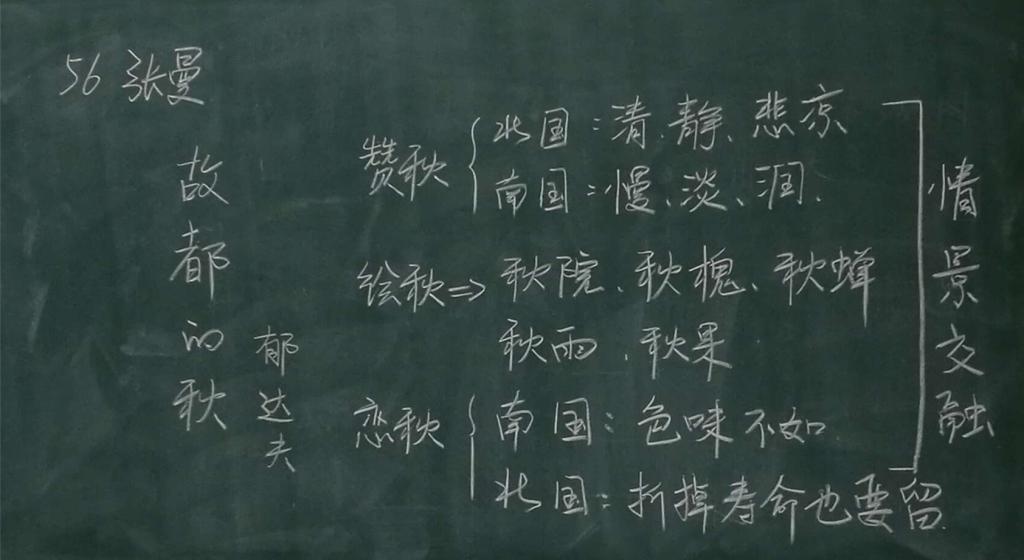 56 张曼
故都的秋
郁达夫
赞秋
北国：清、静、悲凉
南国：慢、淡、润.
绘秋⇒ 秋院、秋槐、秋蝉
秋雨、秋果
恋秋
南国：色味不如
北国：折掉寿命也要留.
情景交融